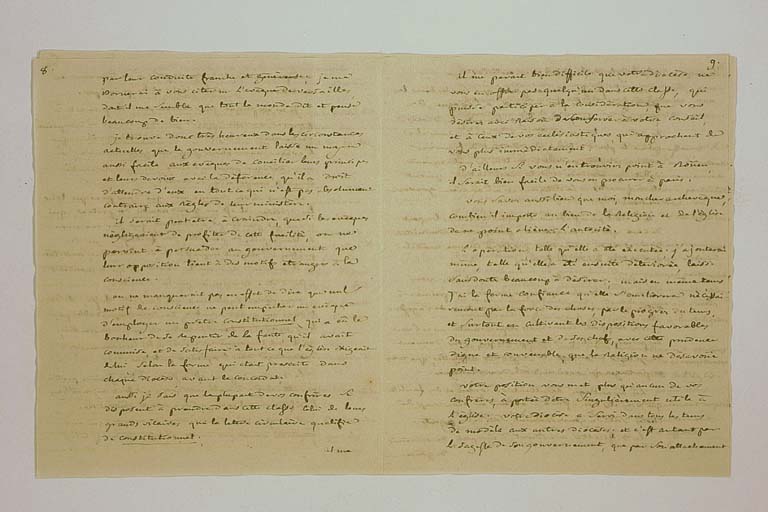 8
par leur conduite franche et généreuse, je me
bornerai à vous citer m. l'évêque de versailles,
dont il me semble que tout le monde dit et pense
beaucoup de bien.
je trouve donc très heureux dans les circonstances
actuelles, que le gouvernement laisse un moyen
aussi facile aux évêques de concilier leurs principes
et leurs devoirs avec la déférence qu'il a droit
d'attendre d'eux en tout ce qui n'est pas absolument
contraire aux règles de leur ministère.
il seroit peut-être à craindre, que si les évêques
négligeoient de profiter de cette facilité, on ne
parvint à persuader au gouvernement que
leur opposition tient à des motifs étrangers à la
conscience.
on ne manqueroit pas en effet de dire que nul
motif de conscience ne peut empêcher un évêque
d'employer un prêtre constitutionnel qui a eu le
bonheur de se repentir de la faute qu'il avoit
commise, et de satisfaire à tout ce que l'église exigeoit
de lui selon la forme qui étoit prescrite dans
chaque diocèse avant le concordat.
aussi je sais que la plupart de vos confrères se
disposent à prendre dans cette classe celui de leurs
grands vicaires, que la lettre circulaire qualifie
de constitutionnel.
il me
9.
il me paroit bien difficile que votre diocèse ne
vous en offre pas quelqu'un dans cette classe, qui
puisse participer à la considération que vous
désirez avec raison de conserver à votre conseil
et à ceux de vos ecclésiastiques qui approchent de
vous plus immédiatement.
d'ailleurs si vous n'en trouviez point à Rouen,
il seroit bien facile de vous en procurer à paris.
vous savez aussi bien que moi, mon cher archevêque,
combien il importe au bien de la Religion et de l'église
de ne point aliéner l'autorité.
L'opération telle qu'elle a été exécutée, j'ajouterai
même, telle qu'elle a été ensuite détériorée, laisse
sans doute beaucoup à désirer. mais en même tems
j'ai la ferme confiance qu'elle s'améliorera nécessai-
rement par la force des choses, par le progrès du tems,
et surtout en cultivant les dispositions favorables
du gouvernement et de son chef, avec cette prudence
digne et convenable, que la religion ne désavoue
point.
votre position vous met plus qu'aucun de vos
confrères, à portée d'être singulièrement utile à
l'église. votre diocèse a servi dans tous les tems
de modèle aux autres diocèses; et c'est autant par
la sagesse de son gouvernement, que par son attachement